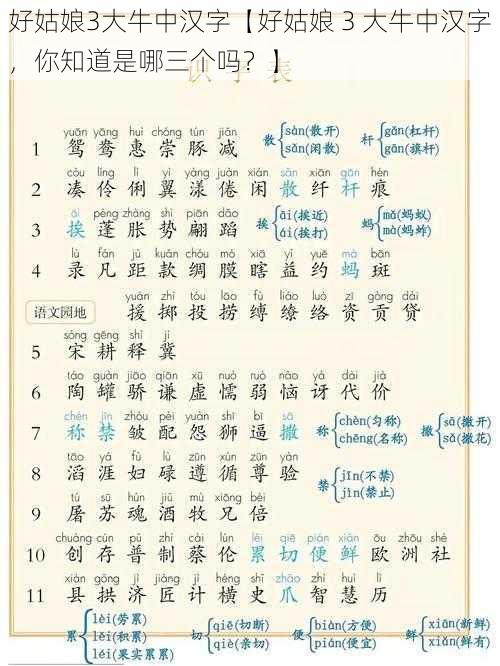 好姑娘3大牛中汉字【好姑娘 3 大牛中汉字
，你知道是哪三个吗？】
识字表
yuān yāng huì chóng tún jiǎn
1 鸳 鸯 惠 崇 豚 减
散 sàn(散开) sǎn(闲散)
杆 gǎn(杠杆) gān(旗杆)
còu líng lì yì yàng juàn xián sàn xiān gǎn hén
2 凑 伶 俐 翼 漾 倦 闲 散 纤 杆 痕
āi péng zhàng shì piān dǎo
3 挨 蓬 胀 势 翩 蹈
挨 āi(挨近) ái(挨打)
蚂 mǎ(蚂蚁) mà(蚂蚱)
lù fán jù kuǎn chóu mó xiā yì yuē mà bān
4 录 凡 距 款 绸 膜 瞎 益 约 蚂 斑
语文园地
yuán zhì tóu lāo fù liáo luò zī gòng dài
援 掷 投 捞 缚 缭 络 资 贡 贷
sòng gēng shì jì
5 宋 耕 释 冀
táo guàn jiāo qiān xū nuò ruò nǎo yà dài jià
6 陶 罐 骄 谦 虚 懦 弱 恼 讶 代 价
chèn jīn zhòu pèi yuàn shī bī sā
7 称 禁 皱 配 怨 狮 逼 撒
称 chèn(匀称) chēng(名称)
撒 sā(撒开) sǎ(撒花)
tāo yá fù lù zūn xún zūn yàn
8 滔 涯 妇 碌 遵 循 尊 验
禁 jīn(不禁) jìn(禁止)
tú sū hún jiǔ mù xiōng bèi
9 屠 苏 魂 酒 牧 兄 倍
chuàng cún pǔ zhì cài lún lěi qiē pián xiān ōu zhōu shè
10 创 存 普 制 蔡 伦 累 切 便 鲜 欧 洲 社
xiàn gǒng jì jiàng jì héng shǐ zhǎo zhì huì lì
11 县 拱 济 匠 计 横 史 爪 智 慧 历
累 lèi(劳累) lěi(积累) léi(果实累累)
切 qiē(切断) qiè(亲切)
便 biàn(方便) pián(便宜)
鲜 xiān(新鲜) xiǎn(鲜有)